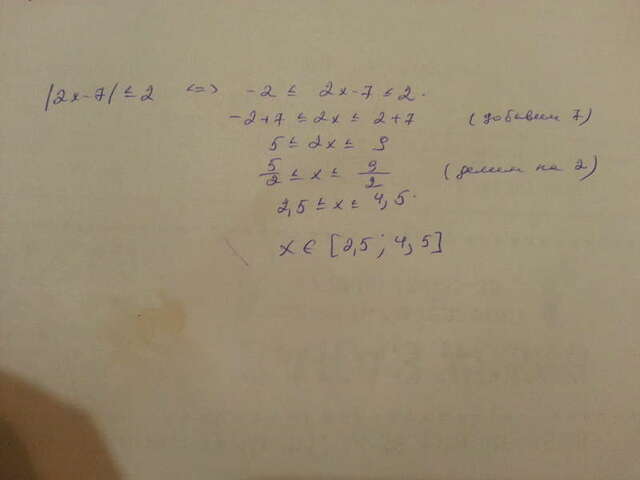 |2x-7| ≤ 2 <=> -2 ≤ 2x-7 ≤ 2.
-2+7 ≤ 2x ≤ 2+7 (добавим 7)
5 ≤ 2x ≤ 9
5/2 ≤ x ≤ 9/2 (делим на 2)
2,5 ≤ x ≤ 4,5.
x ∈ [2,5; 4,5]